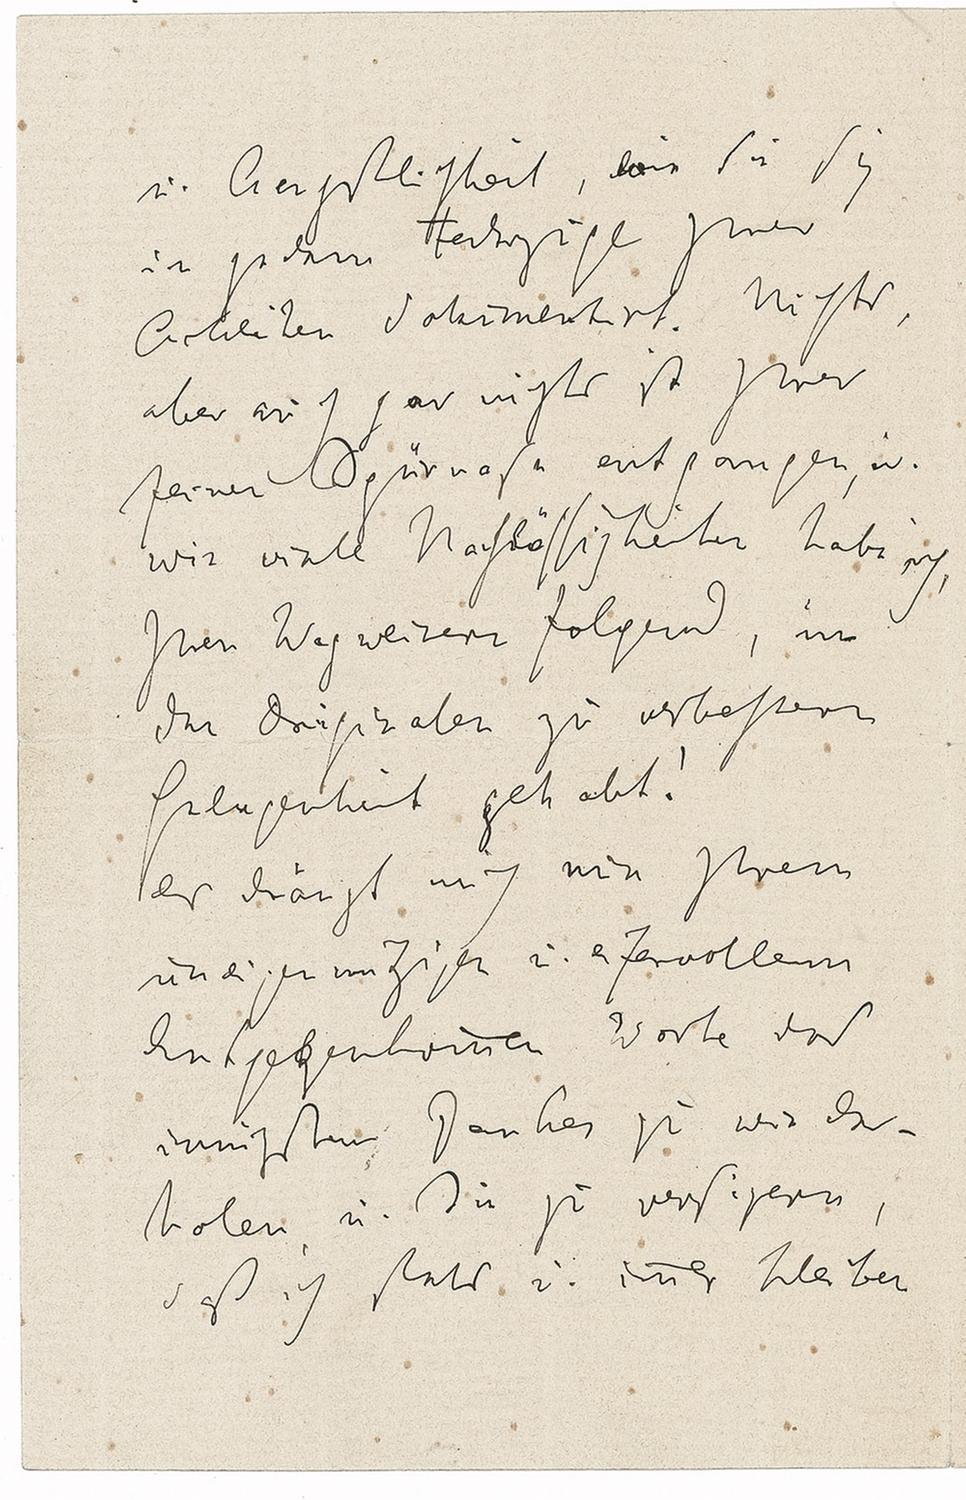 u. Ängstlichkeit, wie Sie sie
in jedem Federzuge Ihrer
Arbeiten dokumentirt. Nichts,
aber auch gar nichts ist Ihrer
feinen Spürnase entgangen, u.
wie viele Nachlässigkeiten habe ich,
Ihren Wegweisern folgend, in
den Originalen zu verbessern
Gelegenheit gehabt!
es drängt mich nun Ihrem
uneigennützigen u. eifervollem
Entgegenkommen Worte des
innigsten Dankes zu wieder-
holen, u. Sie zu versichern,
daß ich stets u. immer bleiben